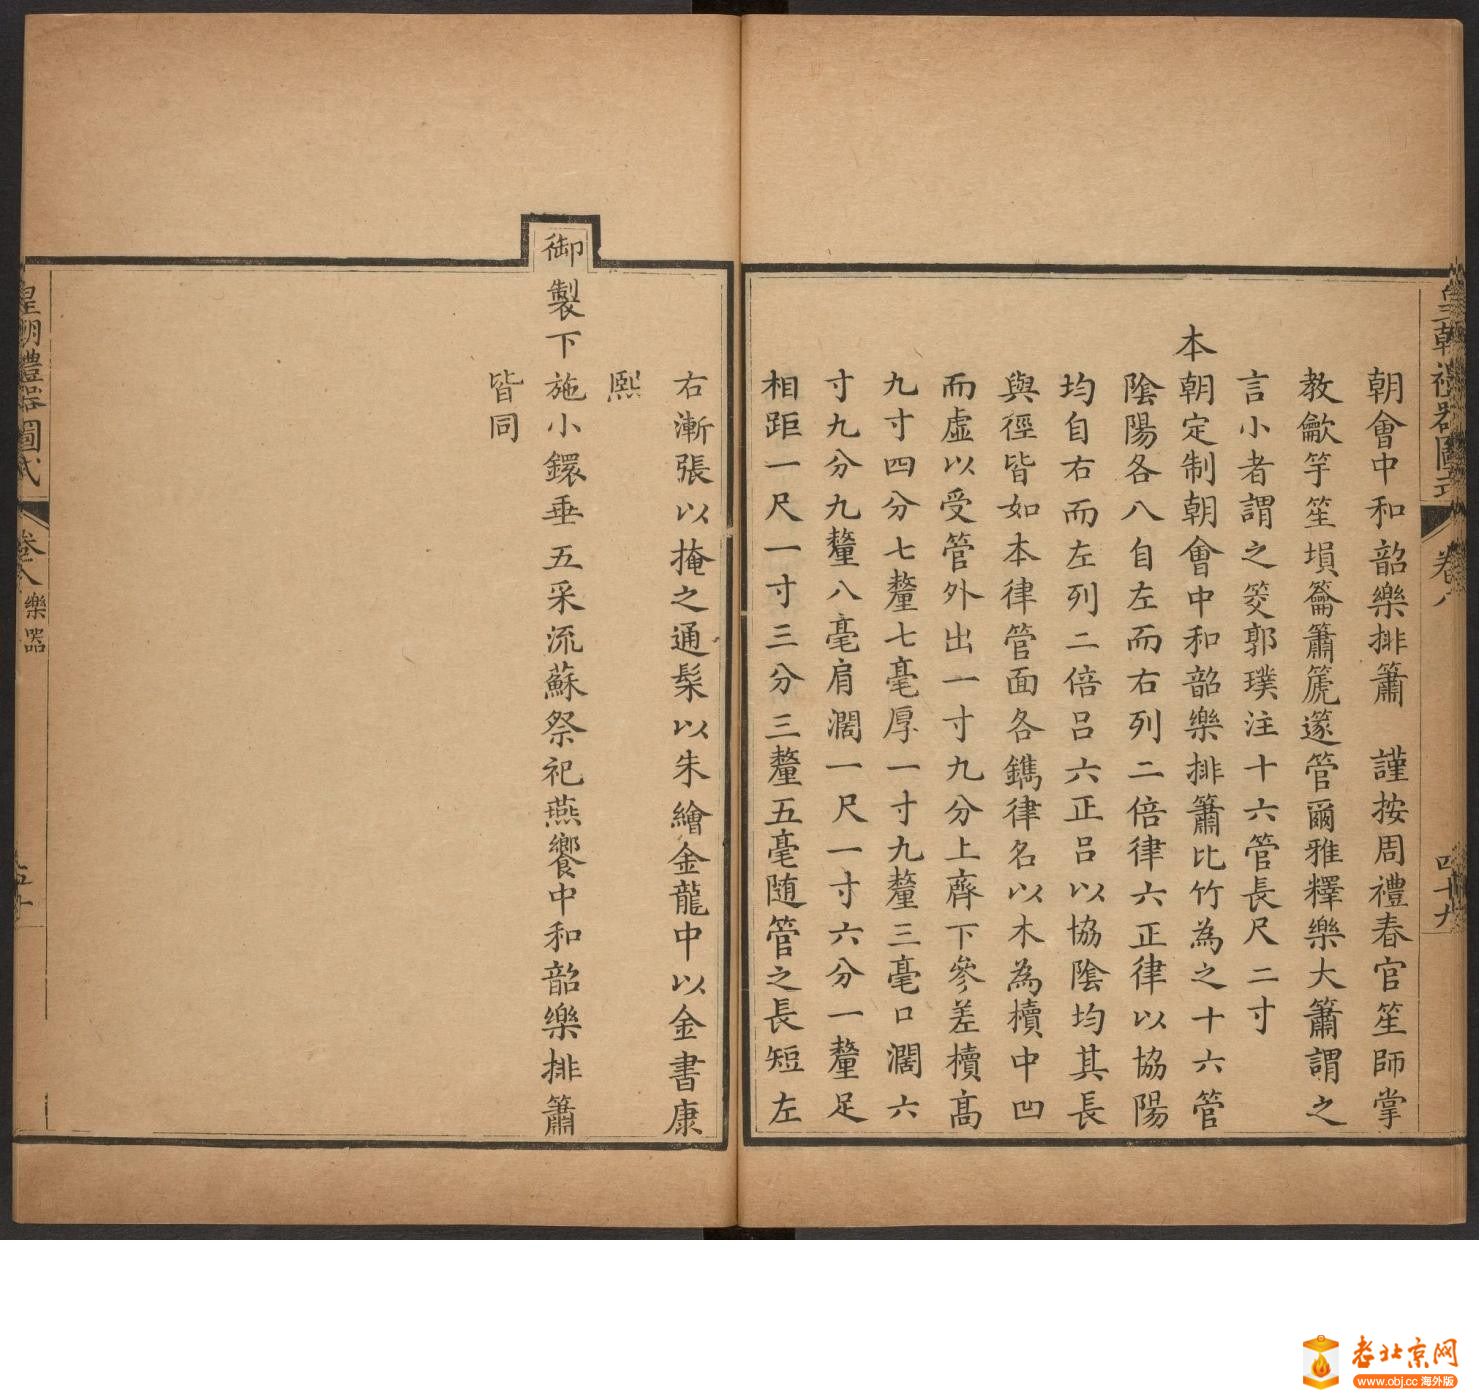 皇朝禮器圖式 卷八
四十九
朝會中和韶樂排簫 謹按周禮春官笙師掌
教龡竽笙塤籥簫篪篴管爾雅釋樂大簫謂之
言小者謂之筊郭璞注十六管長尺二寸
本朝定制朝會中和韶樂排簫比竹為之十六管
陰陽各八自左而右列二倍律六正律以協陽
均自右而左列二倍呂六正呂以協陰均其長
與徑皆如本律管面各鐫律名以木為櫝中凹
而虛以受管外出一寸九分上齊下參差櫝高
九寸四分七釐七毫厚一寸九釐三毫口濶六
寸九分九釐八毫肩濶一尺一寸六分一釐足
相距一尺一寸三分三釐五毫随管之長短左
右漸張以掩之通髹以朱繪金龍中以金書康
熙
御製下施小鐶垂五采流蘇祭祀燕饗中和韶樂排簫
皆同
皇朝禮器圖式 卷八 樂器
老北京网
www.obj.cc 海外版